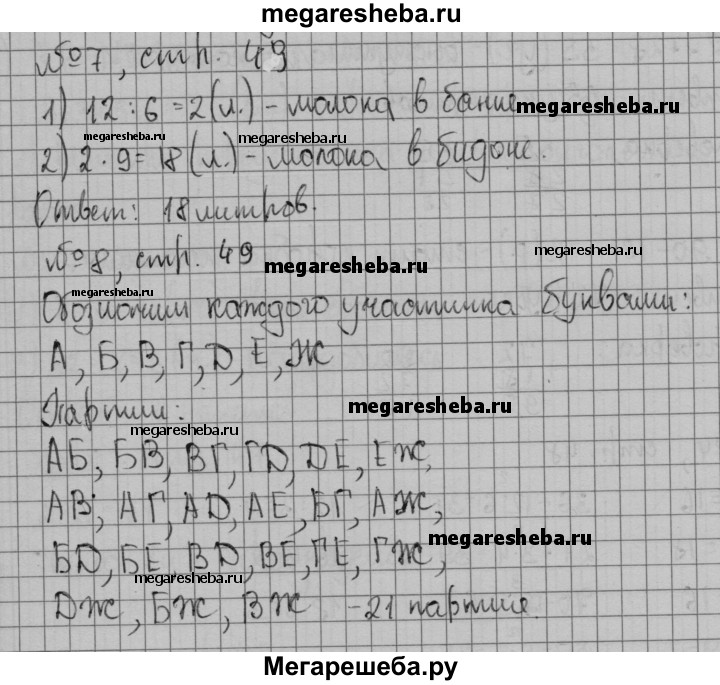 megaresheba.ru
№7, стр. 49
1) 12 : 6 = 2 (л.) - молока в банке megaresheba.ru
megaresheba.ru megaresheba.ru
2) 2 · 9 = 18 (л.) - молока в бидоне.
Ответ: 18 литров.
№8, стр. 49 megaresheba.ru megaresheba.ru
megaresheba.ru
Обозначим каждого участника буквами:
А, Б, В, Г, D, Е, Ж
Партии: megaresheba.ru
megaresheba.ru
АБ, БВ, ВГ, ГD, DЕ, ЕЖ,
АВ, АГ, АD, АЕ, БГ, АЖ,
БD, БЕ, ВD, ВЕ, ГЕ, ГЖ, megaresheba.ru
megaresheba.ru
DЖ, БЖ, ВЖ - 21 партия.
Мегарешеба.ру